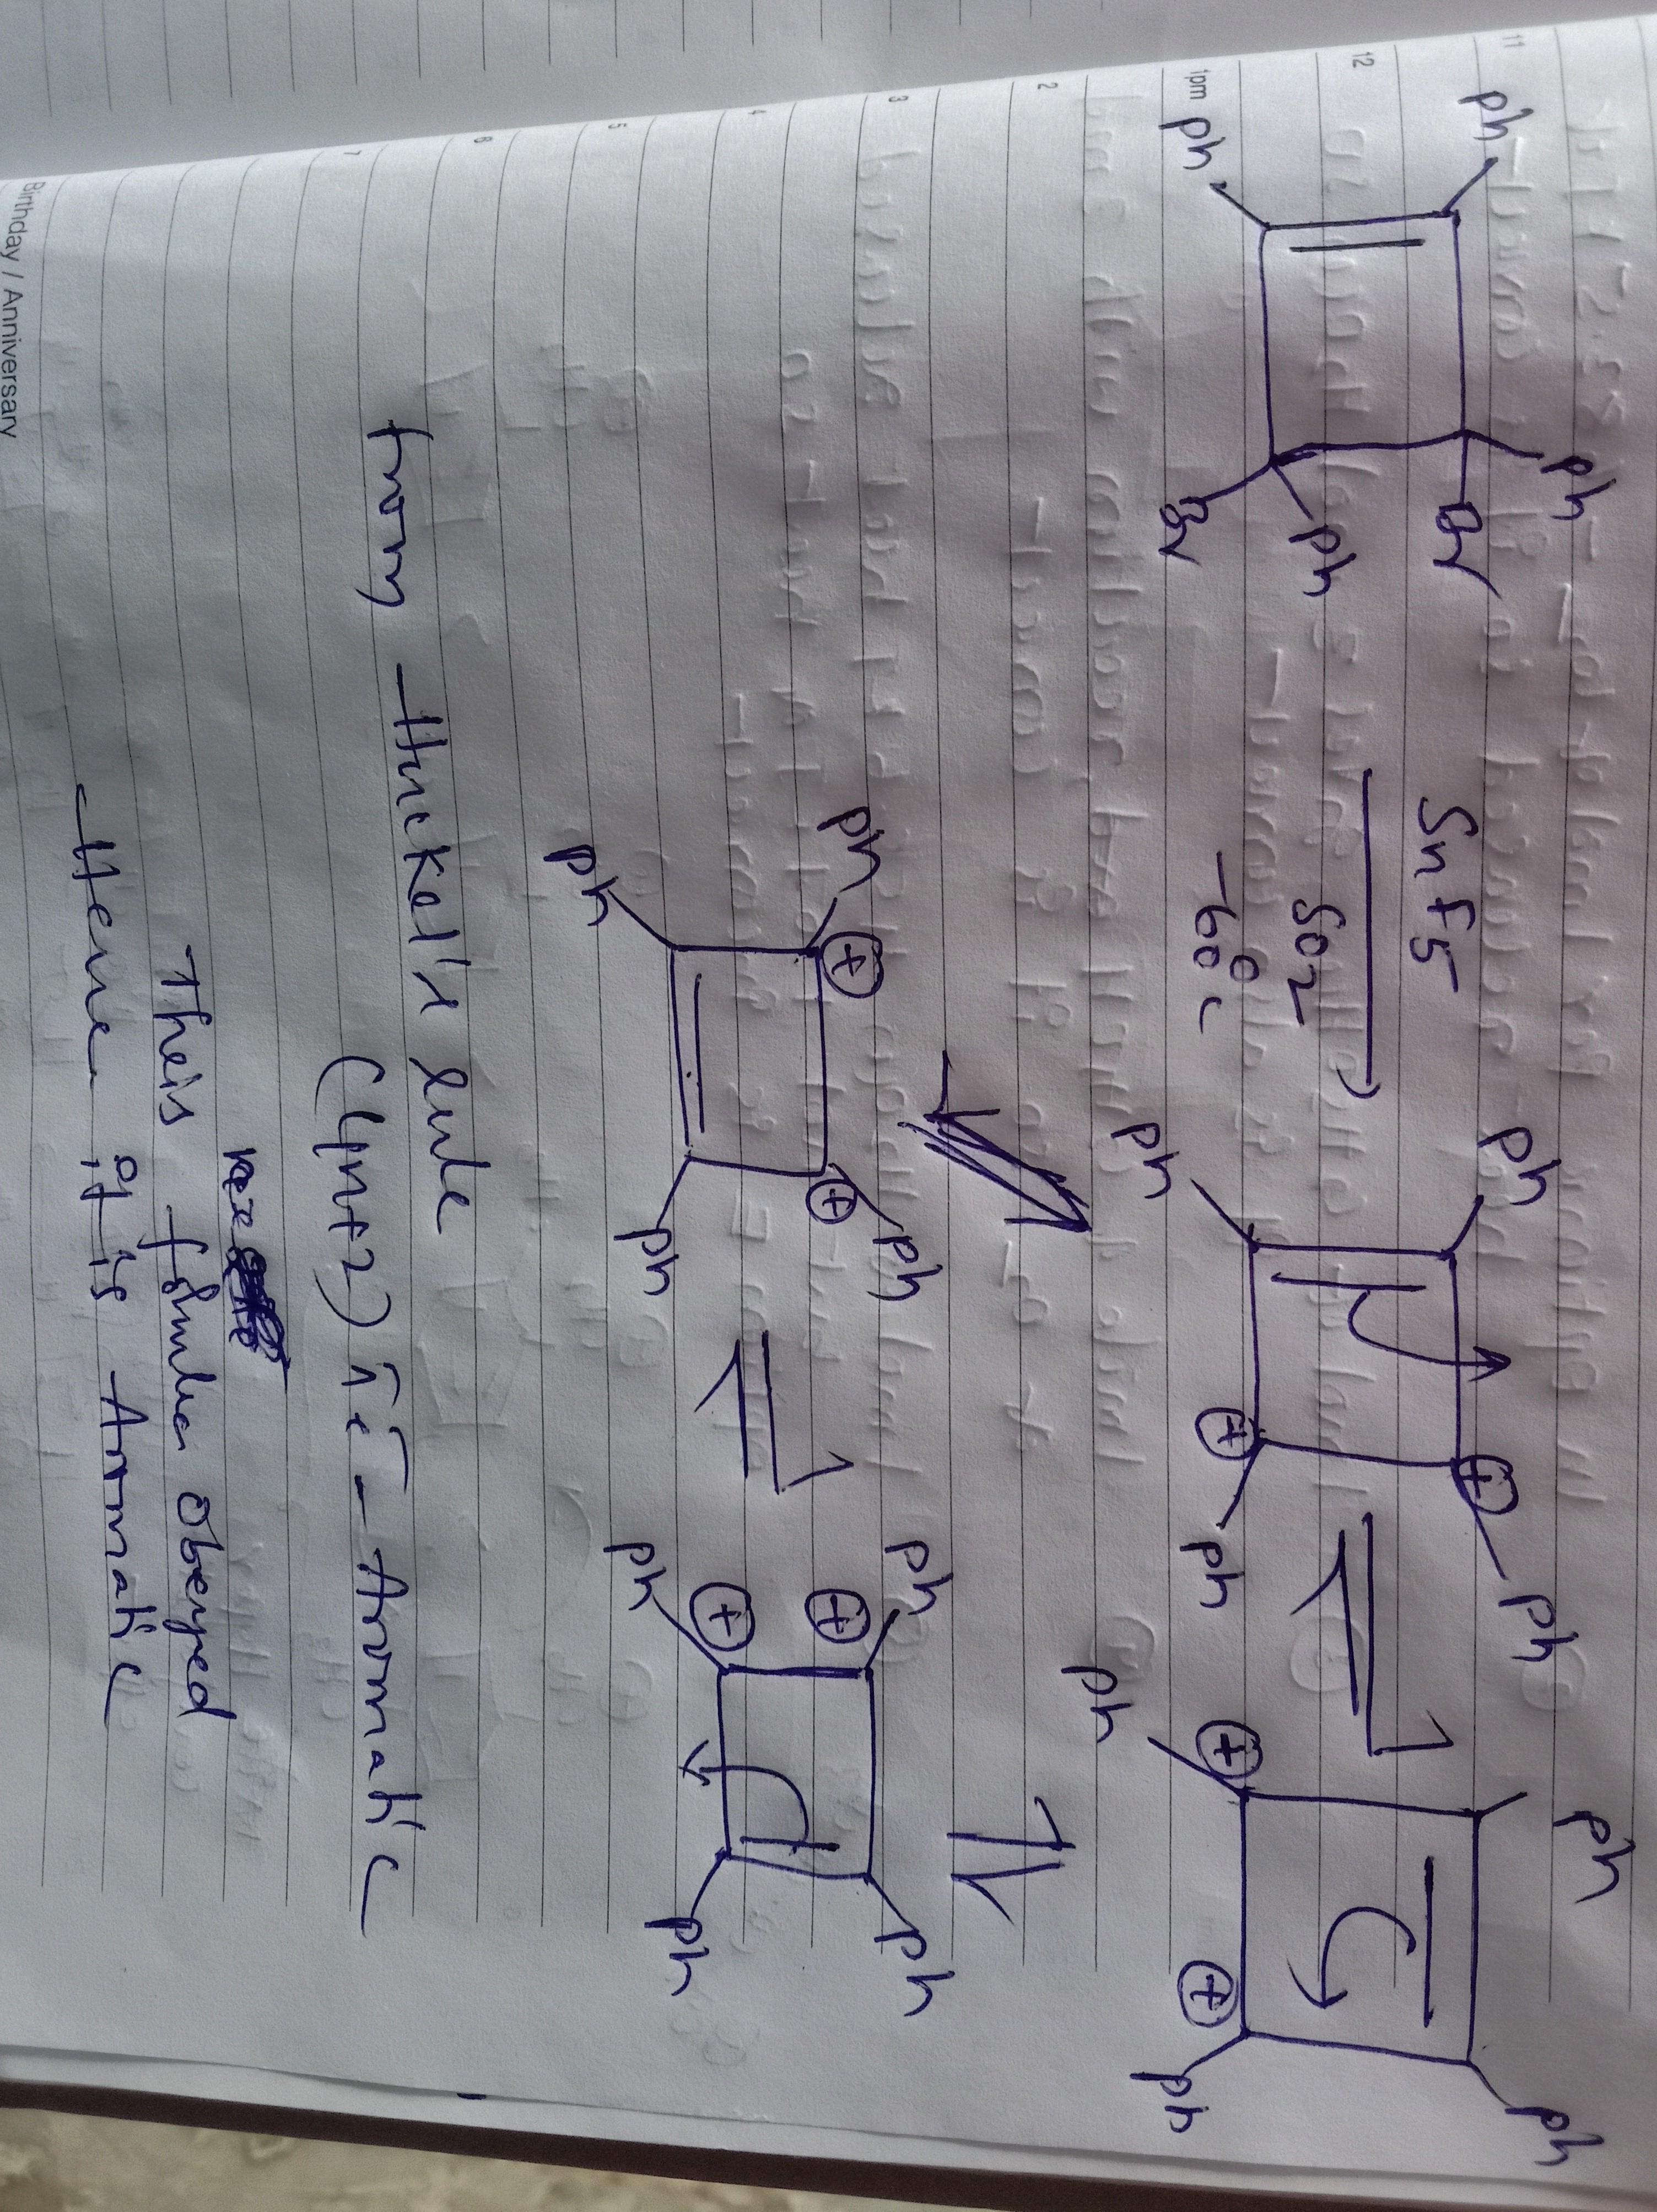 11
12
1pm
2
3
4
5
6
7
Ph Ph
Ph Br
Ph Br
SnF5
SO2
-60°c
Ph ⊕ Ph
Ph ⊕ Ph
Ph Ph
Ph ⊕ ⊕ Ph
Ph ⊕ ⊕ Ph
Ph Ph
Ph ⊕ Ph
Ph ⊕ Ph
from Huckel's rule
(4n+2) πe⁻ - Aromatic
Theis formula obeyed
Hence it is Aromatic
Birthday / Anniversary